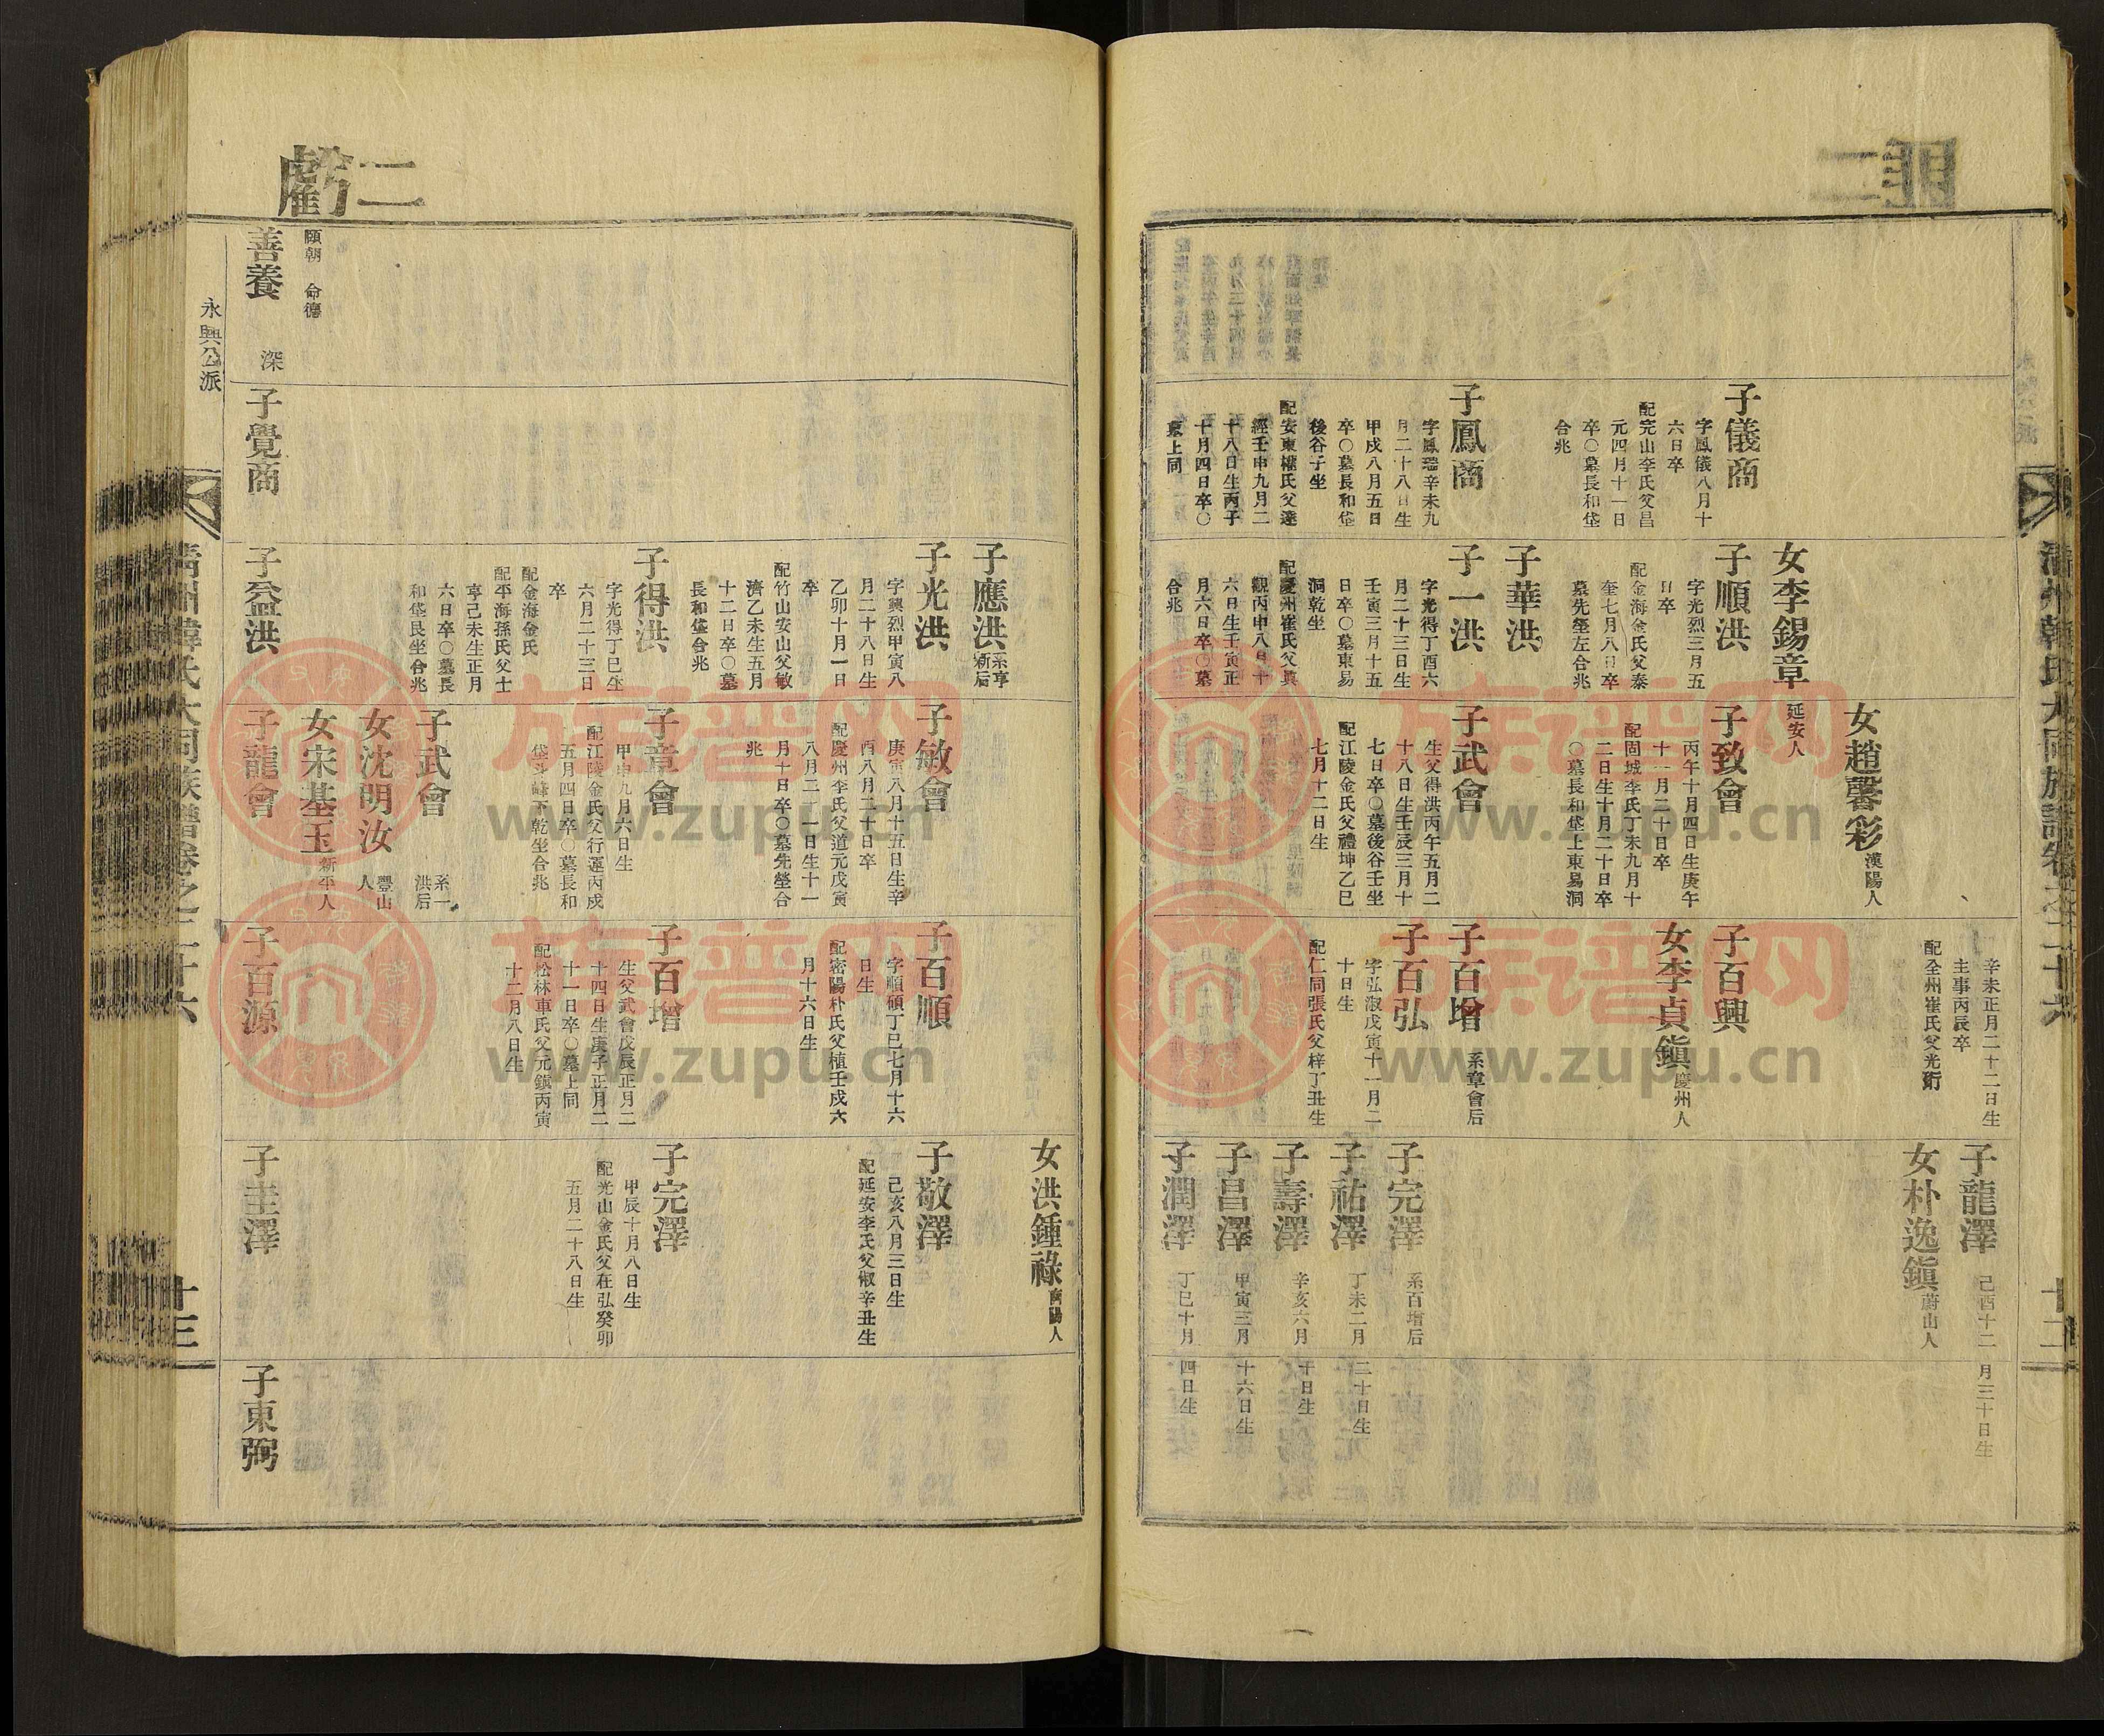 二
清州韓氏大同族譜卷之二十六
十二
子儀商
字鳳儀八月十
六日卒
配完山李氏父昌
元四月十一日
卒〇墓長和垈
合兆
子鳳商
字鳳瑞辛未九
月二十八日生
甲戌八月五日
卒〇墓長和垈
後谷子坐
配安東權氏父達
經壬申九月二
十八日生丙子
十月四日卒〇
墓上同
女李錫章
延安人
子順洪
字光烈三月五
日卒
配金海金氏父泰
奎七月八日卒
墓先塋左合兆
子華洪
子一洪
字光得丁酉六
月二十三日生
壬寅三月十五
日卒〇墓東易
洞乾坐
配慶州崔氏父眞
觀丙申八月十
六日生壬寅正
月六日卒〇墓
合兆
女趙馨彩
漢陽人
子致會
丙午十月四日生庚午
十一月二十日卒
配固城李氏丁未九月十
二日生十月二十日卒
〇墓長和垈上東易洞
子武會
生父得洪丙午五月二
十八日生壬辰三月十
七日卒〇墓後谷壬坐
配江陵金氏父禮坤乙巳
七月十二日生
辛未正月二十二日生
主事丙辰卒
配全州崔氏父光珩
子百興
女李貞鎭
慶州人
子百增
系章會后
子百弘
字弘淑戊寅十一月二
十日生
配仁同張氏父梓丁丑生
子龍澤
己酉十二月三十日生
女朴逸鎭
蔚山人
子完澤
系百增后
子祐澤
丁未二月二十日生
子壽澤
辛亥六月十日生
子昌澤
甲寅三月十六日生
子潤澤
丁巳十月四日生
子應洪
系亨
新后
子光洪
字興烈甲寅八
月二十八日生
乙卯十月一日
卒
配竹山安山父敏
濟乙未生五月
十二日卒〇墓
長和垈合兆
子得洪
字光得丁巳生
六月二十三日
卒
配金海金氏
配平海孫氏父士
亨己未生正月
六日卒〇墓長
和垈艮坐合兆
子敏會
庚寅八月十五日生辛
酉八月二十日卒
配慶州李氏父道元戊寅
八月二十一日生十一
月十日卒〇墓先塋合
兆
子章會
甲申九月六日生
配江陵金氏父行運丙戌
五月四日卒〇墓長和
垈斗峰下乾坐合兆
子武會
系一
洪后
女沈明汝
豐山
人
女宋基玉
新平人
子百順
字順碩丁巳七月十六
日生
配密陽朴氏父植壬戌六
月十六日生
子百增
生父武會戊辰正月二
十四日生庚子正月二
十一日卒〇墓上同
配松林車氏父元鎭丙寅
十二月八日生
女洪鍾祿
南陽人
子敬澤
己亥八月三日生
配延安李氏父俶辛丑生
子完澤
甲辰十月八日生
配光山金氏父在弘癸卯
五月二十八日生
虧二
頤朝 命德
善養
深
子覺商
子益洪
子龍會
子百源
子圭澤
子東弼
永興公派
清州韓氏大同族譜卷之二十六
十三
族谱网
www.zupu.cn
族谱网
www.zupu.cn
族谱网
www.zupu.cn
族谱网
www.zupu.cn